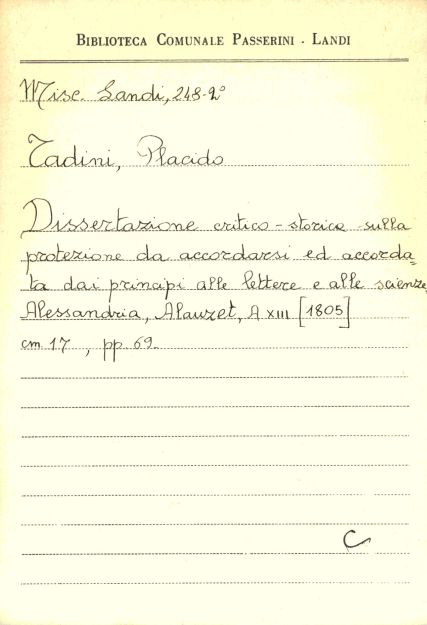 BIBLIOTECA COMUNALE PASSERINI - LANDI
Misc. Landi, 248-2°
Tadini, Placido
Dissertazione critico-storica sulla
protezione da accordarsi ed accorda-
ta dai principi alle lettere e alle scienze,
Alessandria, Alauzet, A XIII [1805]
cm 17, pp 69.
C